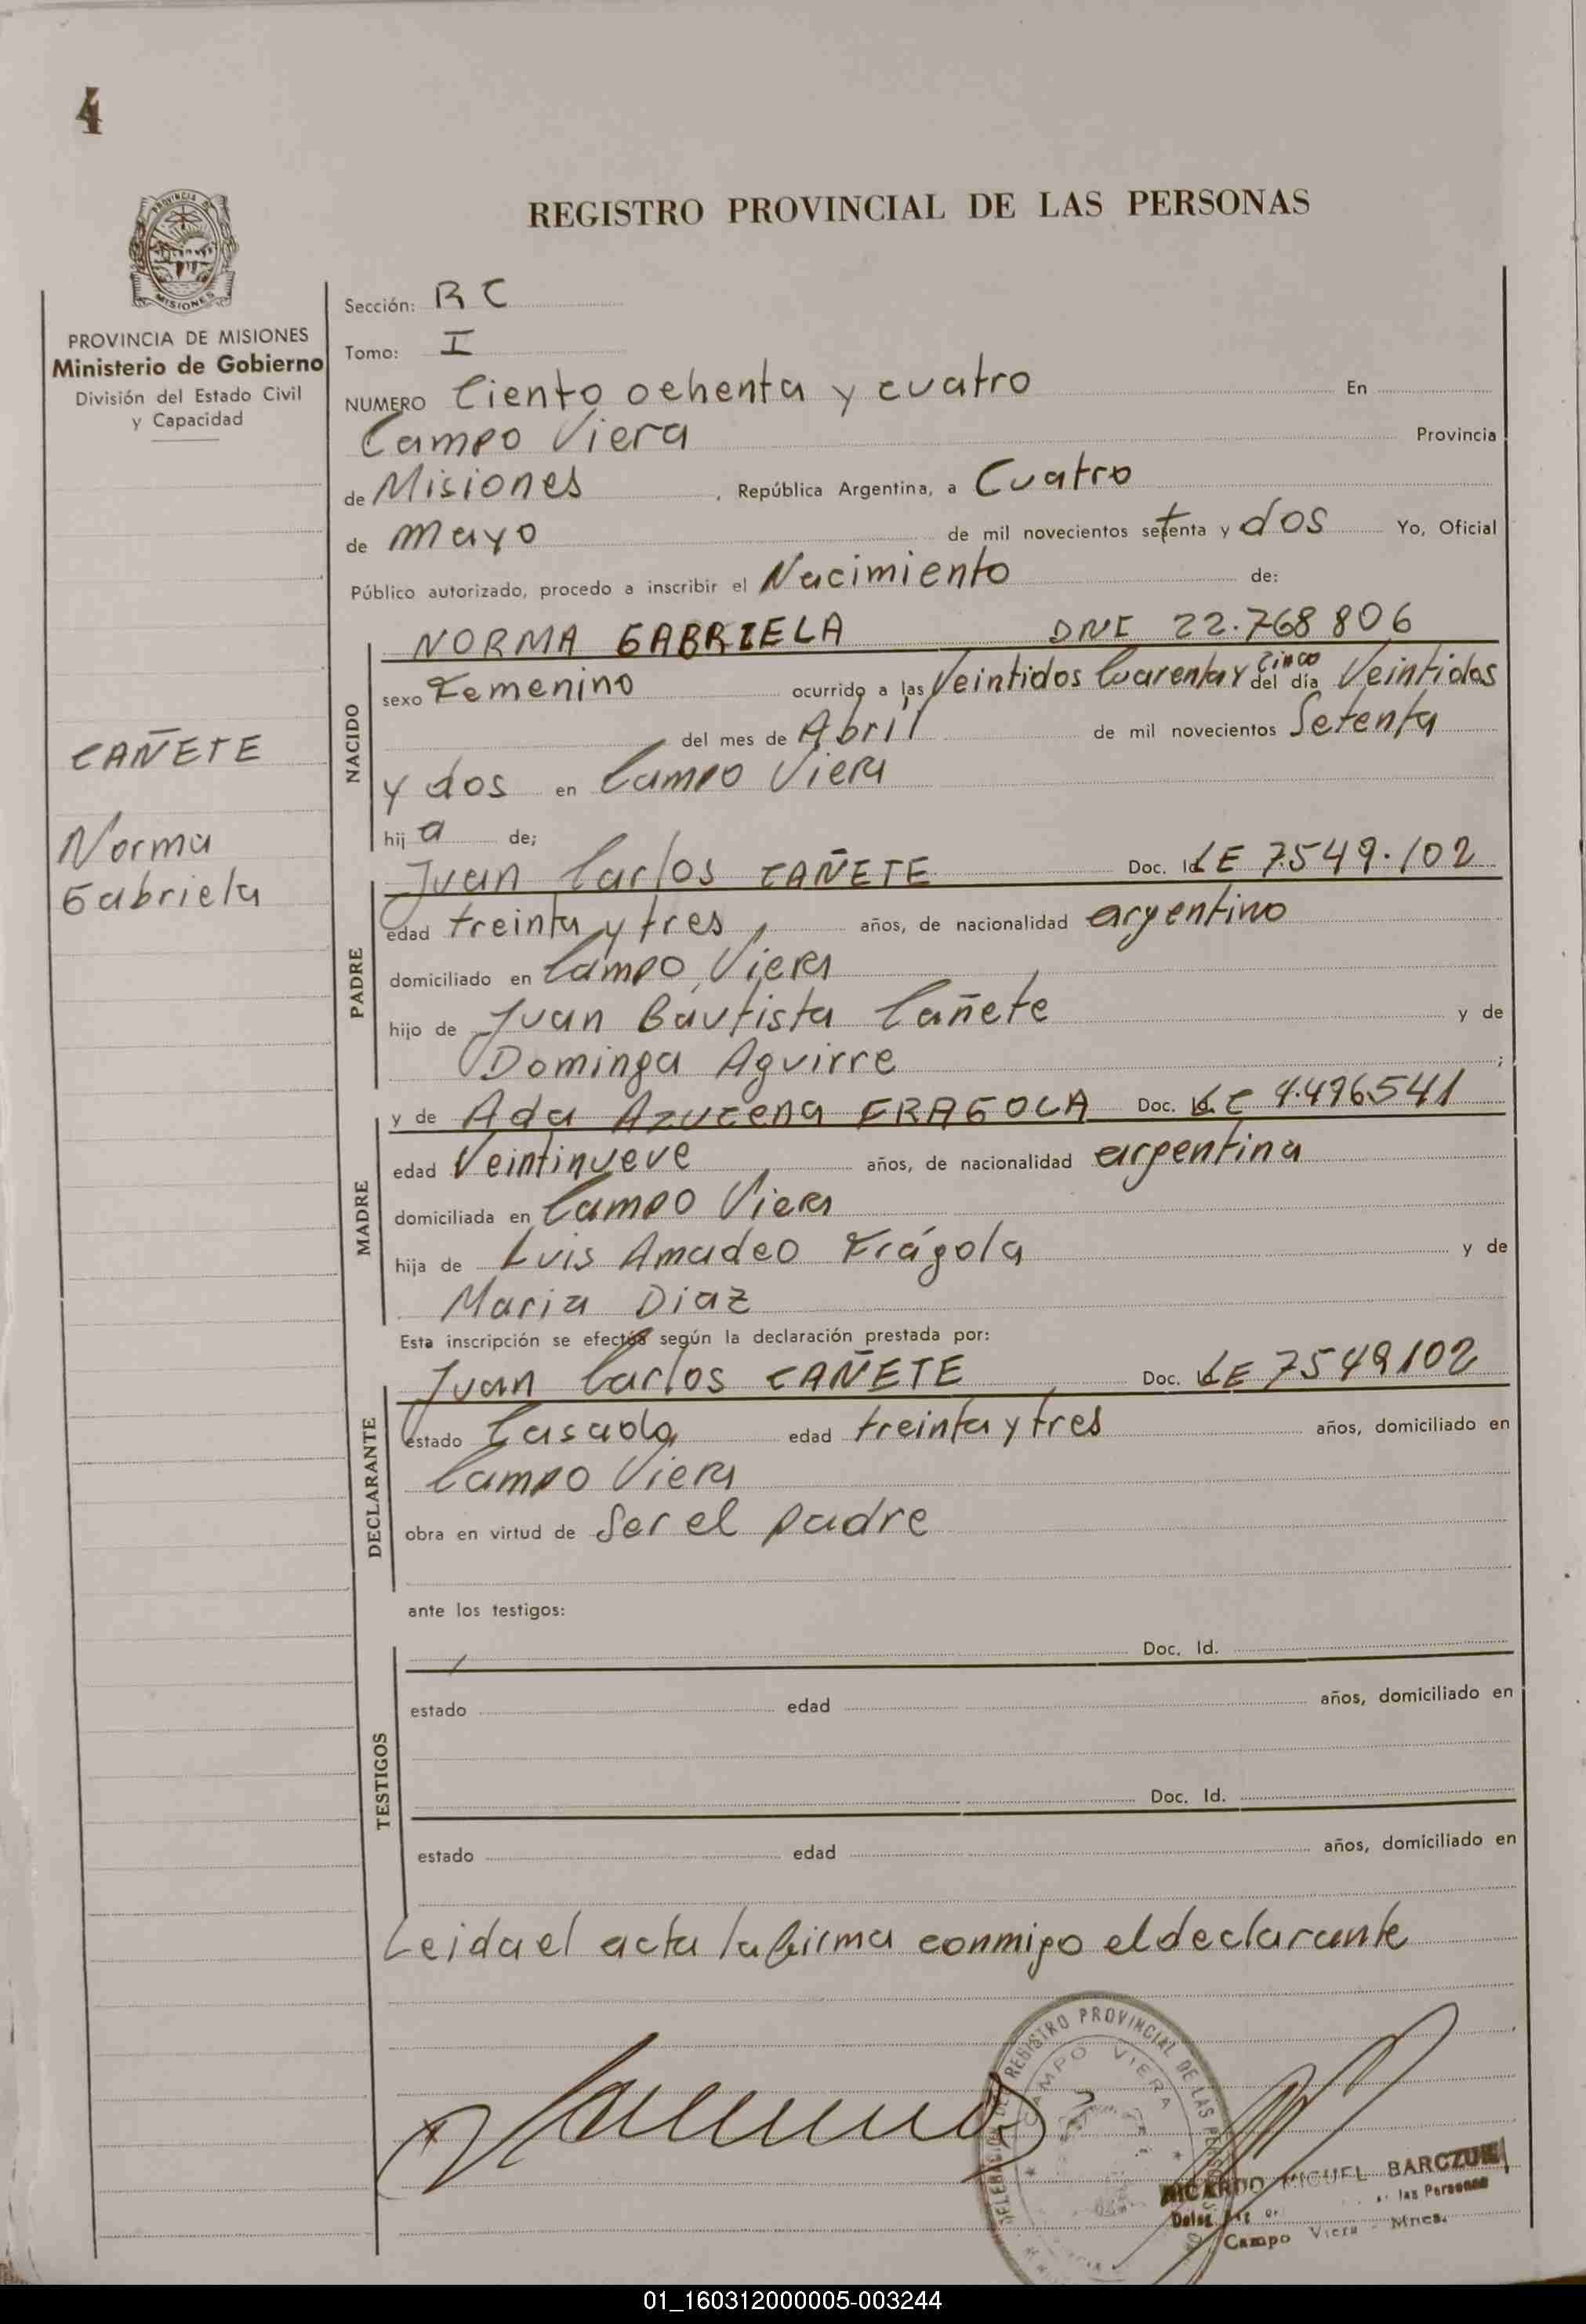 4
PROVINCIA DE
MISIONES
REGISTRO PROVINCIAL DE LAS PERSONAS
PROVINCIA DE MISIONES
Ministerio de Gobierno
División del Estado Civil
y Capacidad
CAÑETE
Norma
Gabriela
Sección: RC
Tomo: I
NUMERO Ciento ochenta y cuatro En
Campo Viera Provincia
de Misiones , República Argentina, a Cuatro
de mayo de mil novecientos setenta y dos Yo, Oficial
Público autorizado, procedo a inscribir el Nacimiento de:
NACIDO
NORMA GABRIELA DNI 22.768806
sexo Femenino ocurrido a las Veintidos Cuarenta y cinco del día Veintidos
del mes de Abril de mil novecientos Setenta
y dos en Campo Viera
hij a de;
PADRE
Juan Carlos CAÑETE Doc. Id LE 7.549.102
edad treinta y tres años, de nacionalidad argentino
domiciliado en Campo Viera
hijo de Juan Bautista Cañete y de
Dominga Aguirre ;
MADRE
y de Ada Azucena FRAGOLA Doc. LC 4.496541
edad Veintinueve años, de nacionalidad argentina
domiciliada en Campo Viera
hija de Luis Amadeo Frágola y de
Maria Diaz
Esta inscripción se efectúa según la declaración prestada por:
DECLARANTE
Juan Carlos CAÑETE Doc. Id LE 7549102
estado Casado edad treinta y tres años, domiciliado en
Campo Viera
obra en virtud de Ser el padre
ante los testigos:
TESTIGOS
Doc. Id.
estado edad años, domiciliado en
Doc. Id.
estado edad años, domiciliado en
Leida el acta la firma conmigo el declarante
REGISTRO PROVINCIAL DE LAS PERSONAS
CAMPO VIERA
RICARDO MIGUEL BARCZUK
las Personas
Campo Viera - Mnes.
01_160312000005-003244